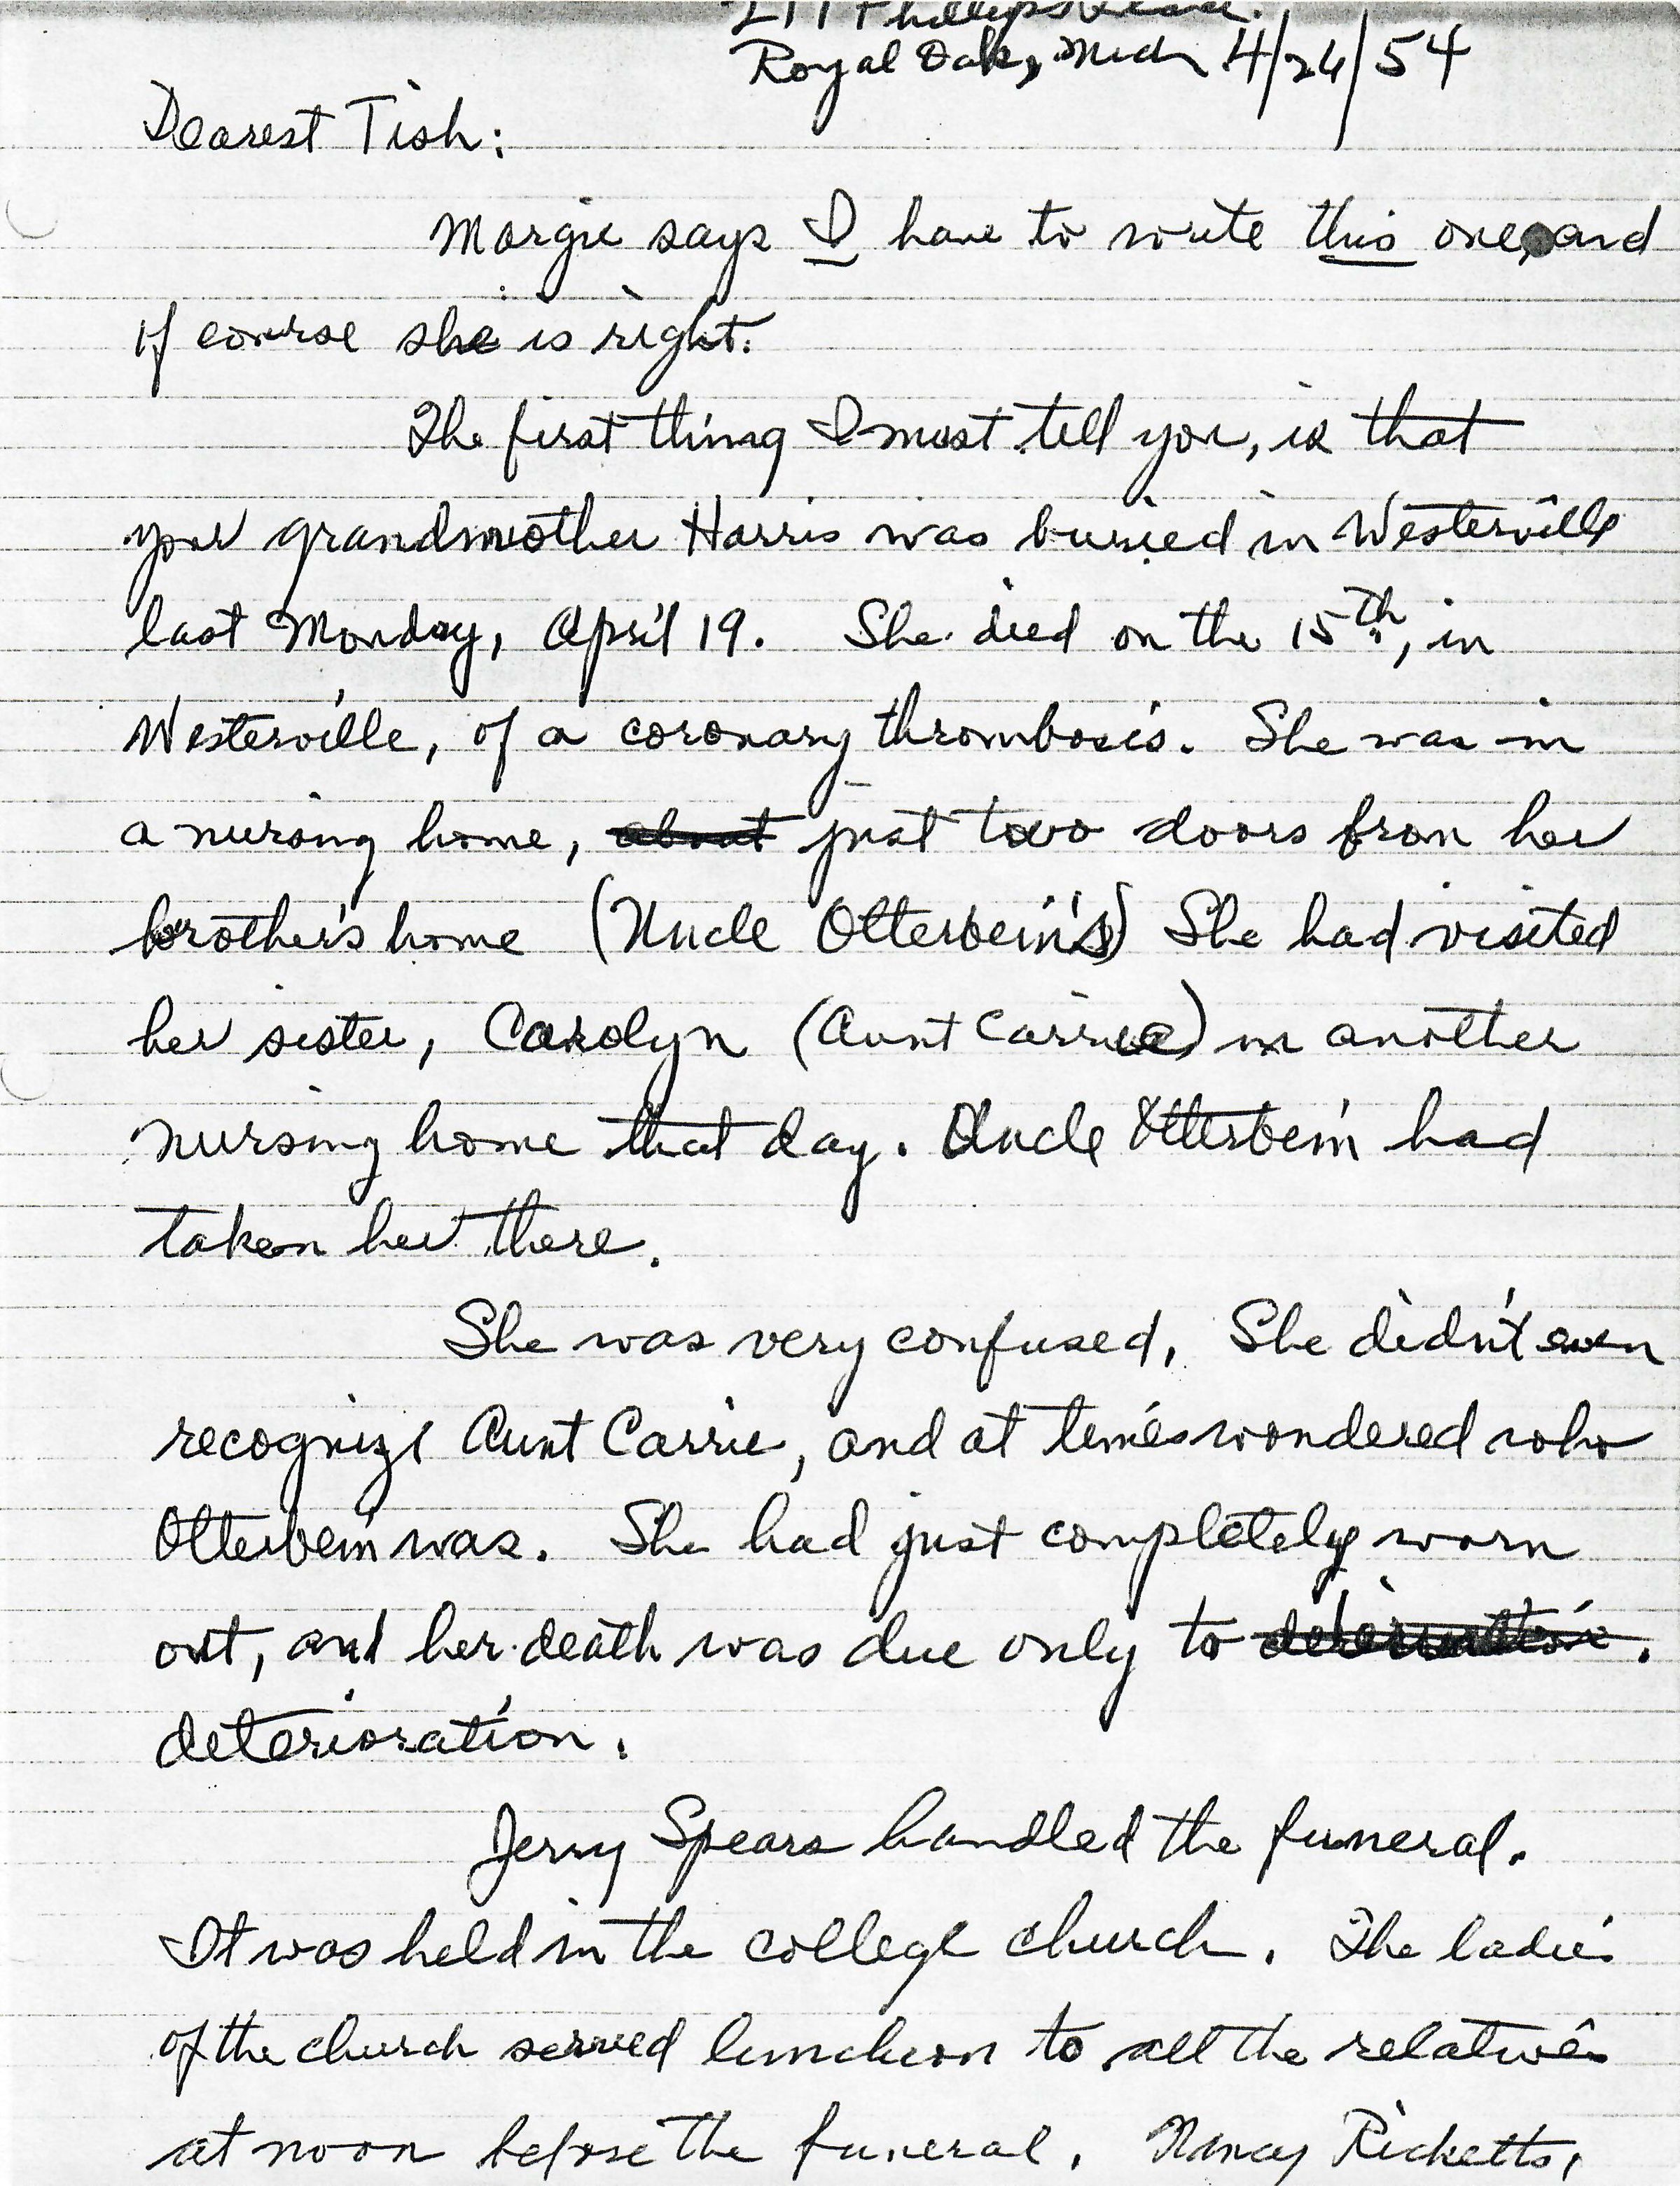 Royal Oak, Mich 4/26/54
Dearest Tish:
Margie says I have to write this one, and
of course she is right.
The first thing I must tell you, is that
your grandmother Harris was buried in Westerville
last Monday, April 19. She died on the 15th, in
Westerville, of a coronary thrombosis. She was in
a nursing home, about just two doors from her
brother's home (Uncle Otterbein's) She had visited
her sister, Carolyn (Aunt Carrie) in another
nursing home that day. Uncle Otterbein had
taken her there.
She was very confused. She didn't even
recognize Aunt Carrie, and at times wondered who
Otterbein was. She had just completely worn
out, and her death was due only to .
deterioration.
Jerry Spears handled the funeral.
It was held in the college church. The ladies
of the church served luncheon to all the relatives
at noon before the funeral. Nancy Ricketts,